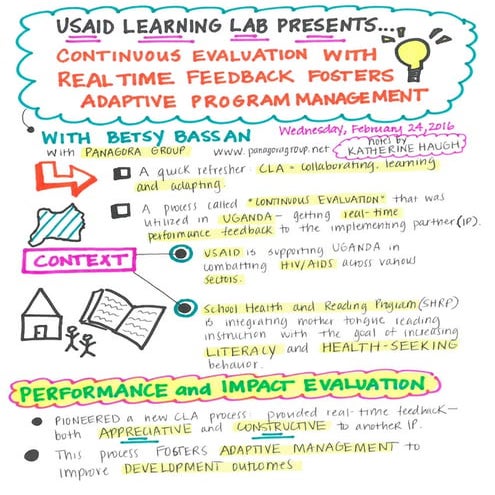 USAID LEARNING LAB PRESENTS...
CONTINUOUS EVALUATION WITH
REAL TIME FEEDBACK FOSTERS
ADAPTIVE PROGRAM MANAGEMENT
WITH BETSY BASSAN
Wednesday, February 24, 2016
with PANAGORA GROUP www.panagoragroup.net
notes by
KATHERINE HAUGH
A quick refresher: CLA = collaborating, learning
and adapting.
A process called "CONTINUOUS EVALUATION" that was
utilized in UGANDA - getting real-time
performance feedback to the implementing partner (IP).
CONTEXT
USAID is supporting UGANDA in
combatting HIV/AIDS across various
sectors.
School Health and Reading Program (SHRP)
is integrating mother tongue reading
instruction with the goal of increasing
LITERACY and HEALTH-SEEKING
behavior.
PERFORMANCE and IMPACT EVALUATION
PIONEERED a new CLA process: provided real-time feedback—
both APPRECIATIVE and CONSTRUCTIVE to another IP.
This process FOSTERS ADAPTIVE MANAGEMENT to
improve DEVELOPMENT outcomes